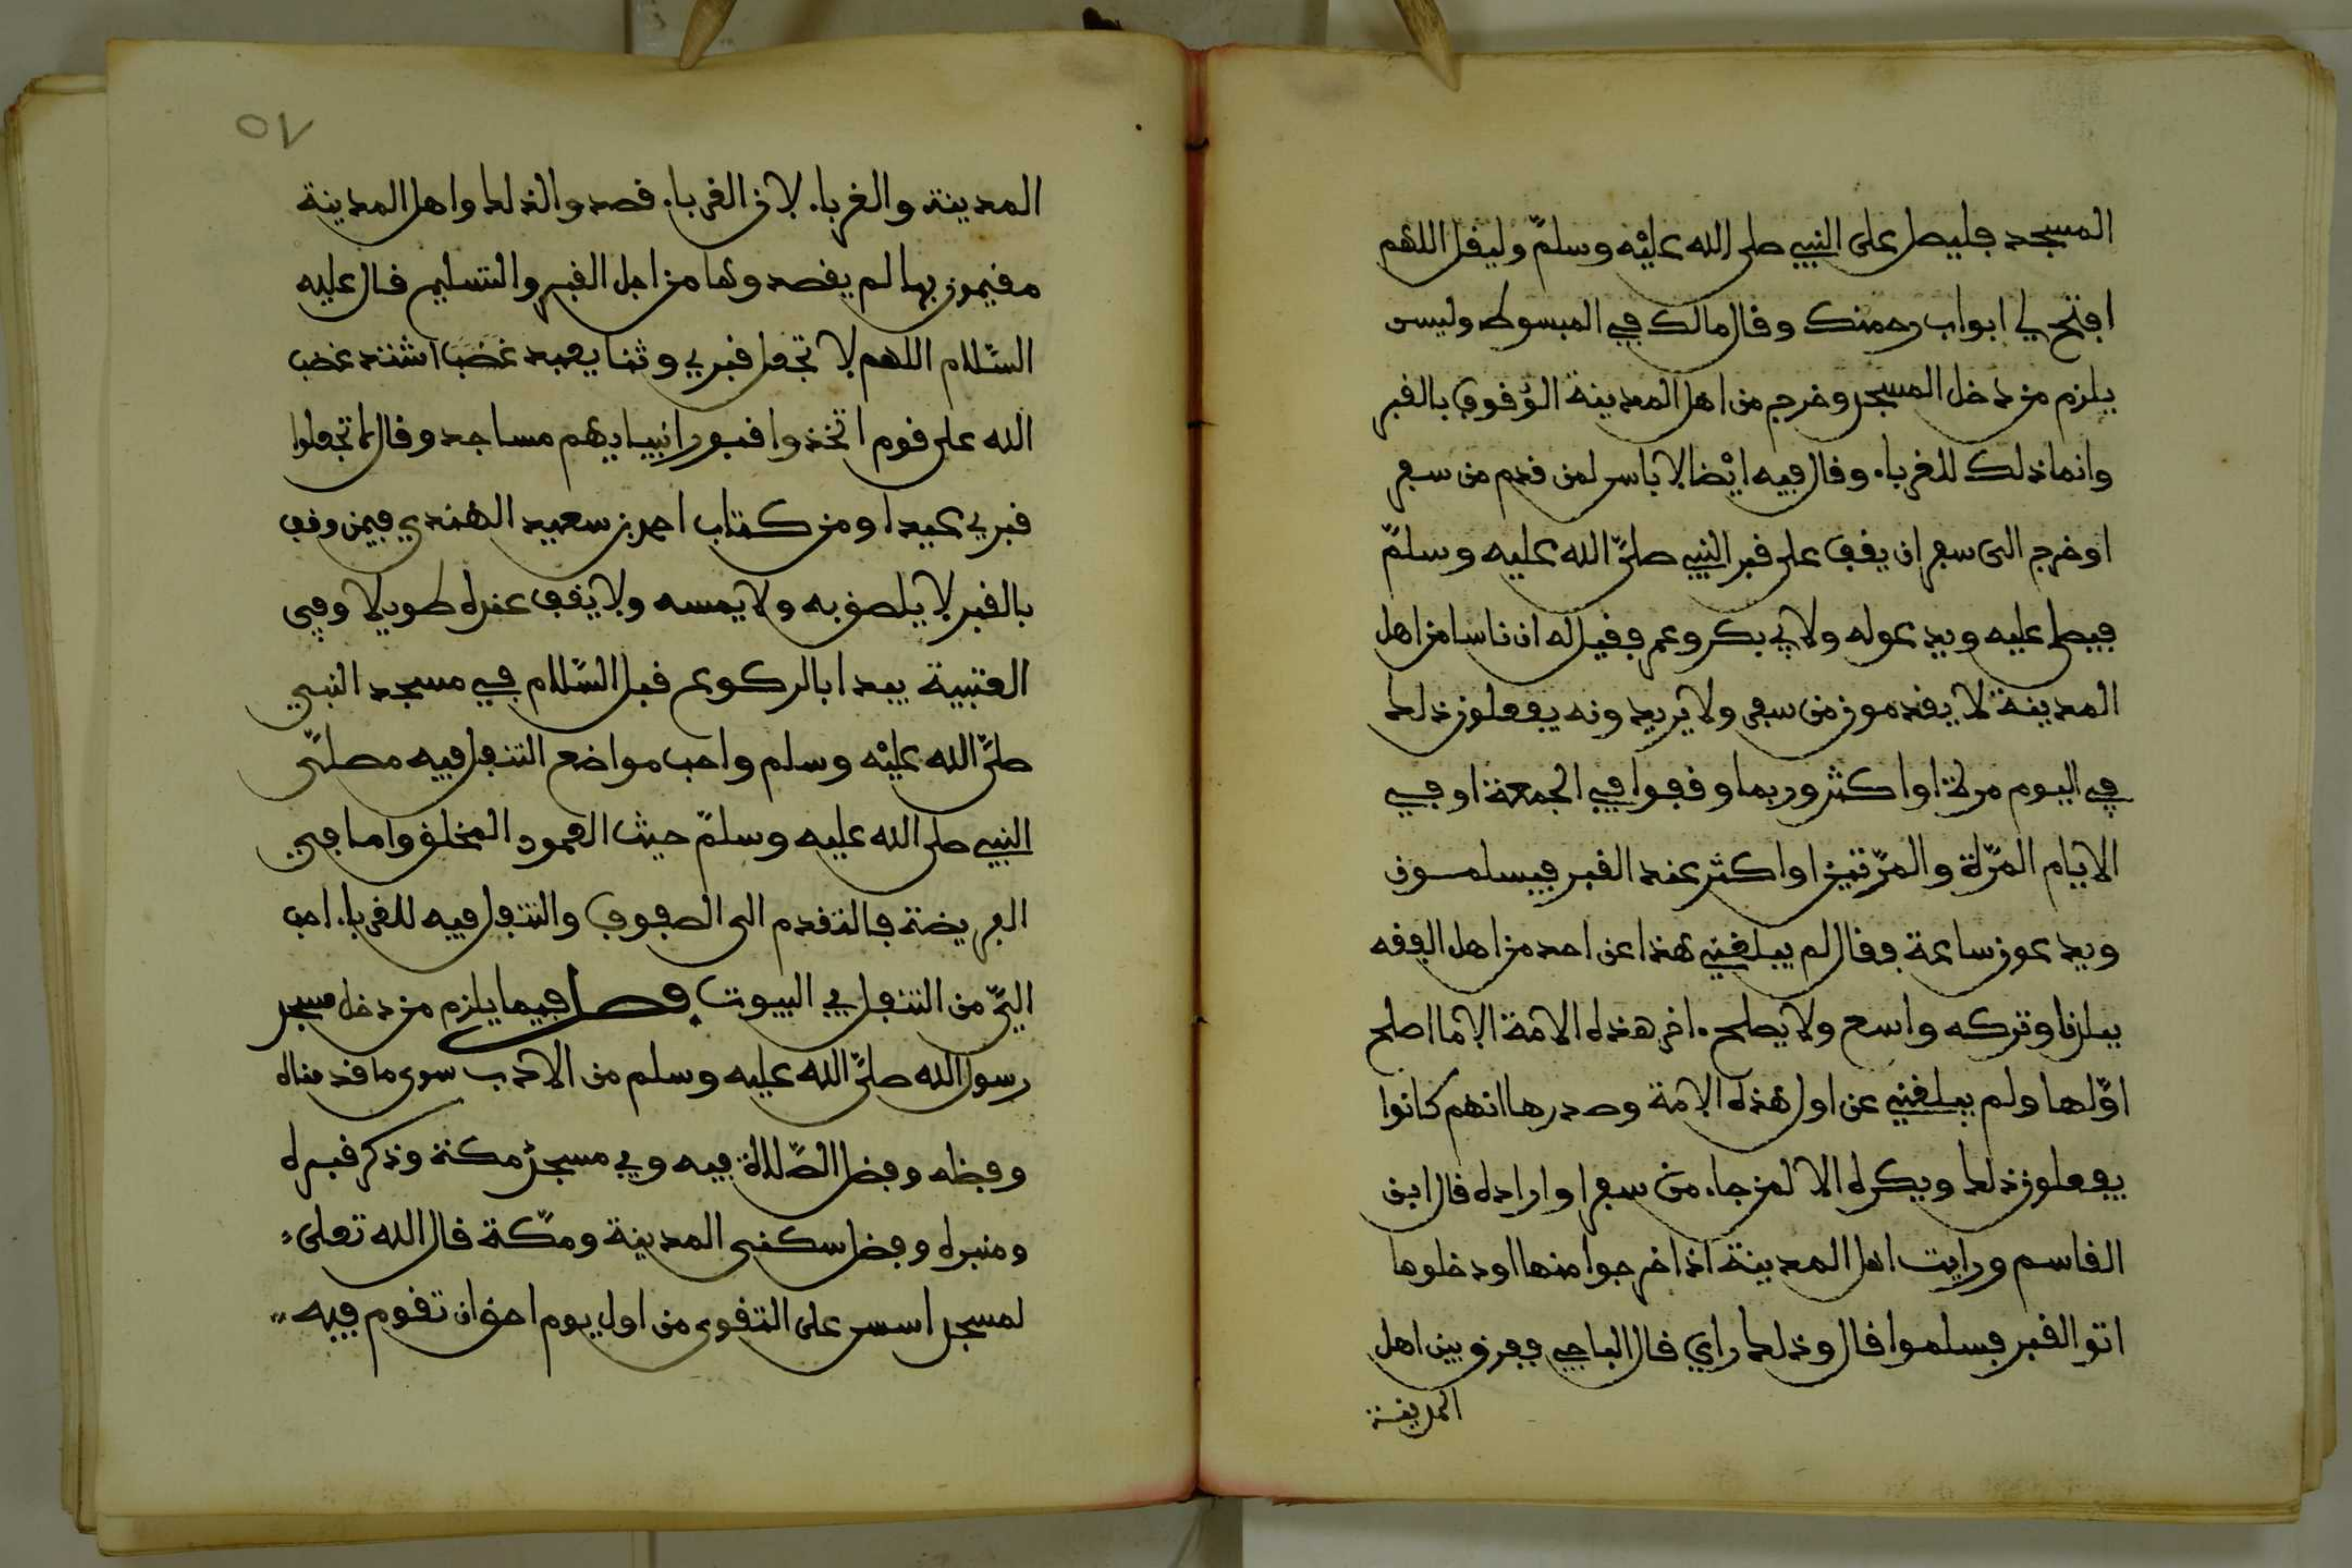 المسجد فليصل على النبي صلى الله عليه وسلم وليقل اللهم
افتح لي ابواب رحمتك وقال مالك في المبسوط وليس
يلزم من دخل المسجد وخرج من اهل المدينة الوقوف بالقبر
وانما ذلك للغرباء وقال فيه ايضا لا باس لمن قدم من سفر
او خرج الى سفر ان يقف على قبر النبي صلى الله عليه وسلم
فيصلي عليه ويدعو له ولابي بكر وعمر فقيل له ان ناسا من اهل
المدينة لا يقدمون من سفر ولا يريدونه يفعلون ذلك
في اليوم مرة او اكثر وربما وقفوا في الجمعة او في
الايام المرة والمرتين او اكثر عند القبر فيسلمون
ويدعون ساعة فقال لم يبلغني هذا عن احد من اهل الفقه
ببلدنا وتركه واسع ولا يصلح ءاخر هذه الامة الا ما اصلح
اولها ولم يبلغني عن اول هذه الامة وصدرها انهم كانوا
يفعلون ذلك ويكره الا لمن جاء من سفر او اراده قال ابن
القاسم ورايت اهل المدينة اذا خرجوا منها او دخلوها
اتو القبر فسلموا قال وذلك راي قال الباجي ففرق بين اهل
المدينة
٥٧
المدينة والغرباء لان الغرباء قصدوا لذلك واهل المدينة
مقيمون بها لم يقصدوها من اجل القبر والتسليم قال عليه
السلام اللهم لا تجعل قبري وثنا يعبد غضب اشتد غضب
الله على قوم اتخذوا قبور انبيايهم مساجد وقال لا تجعلوا
قبري عيدا ومن كتاب احمد بن سعيد الهندي فيمن وقف
بالقبر لا يلصق به ولا يمسه ولا يقف عنده طويلا وفي
العتبية يبدا بالركوع قبل السلام في مسجد النبي
صلى الله عليه وسلم واحب مواضع التنفل فيه مصلى
النبي صلى الله عليه وسلم حيث العمود المخلق واما في
الفريضة فالتقدم الى الصفوف والتنفل فيه للغرباء احب
الي من التنفل في البيوت فصل فيما يلزم من دخل مسجد
رسول الله صلى الله عليه وسلم من الادب سوى ما قدمناه
وفضله وفضل الصلاة فيه وفي مسجد مكة وذكر قبره
ومنبره وفضل سكنى المدينة ومكة قال الله تعلى
لمسجد اسس على التقوى من اول يوم احق ان تقوم فيه